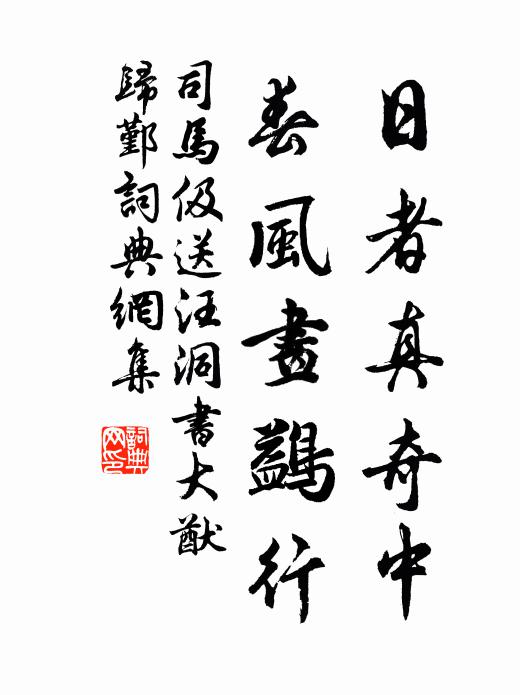 日者真奇中
春風畫鷁行
司馬伋送汪洞書大猷
歸鄞詞典網集
詞典
网印